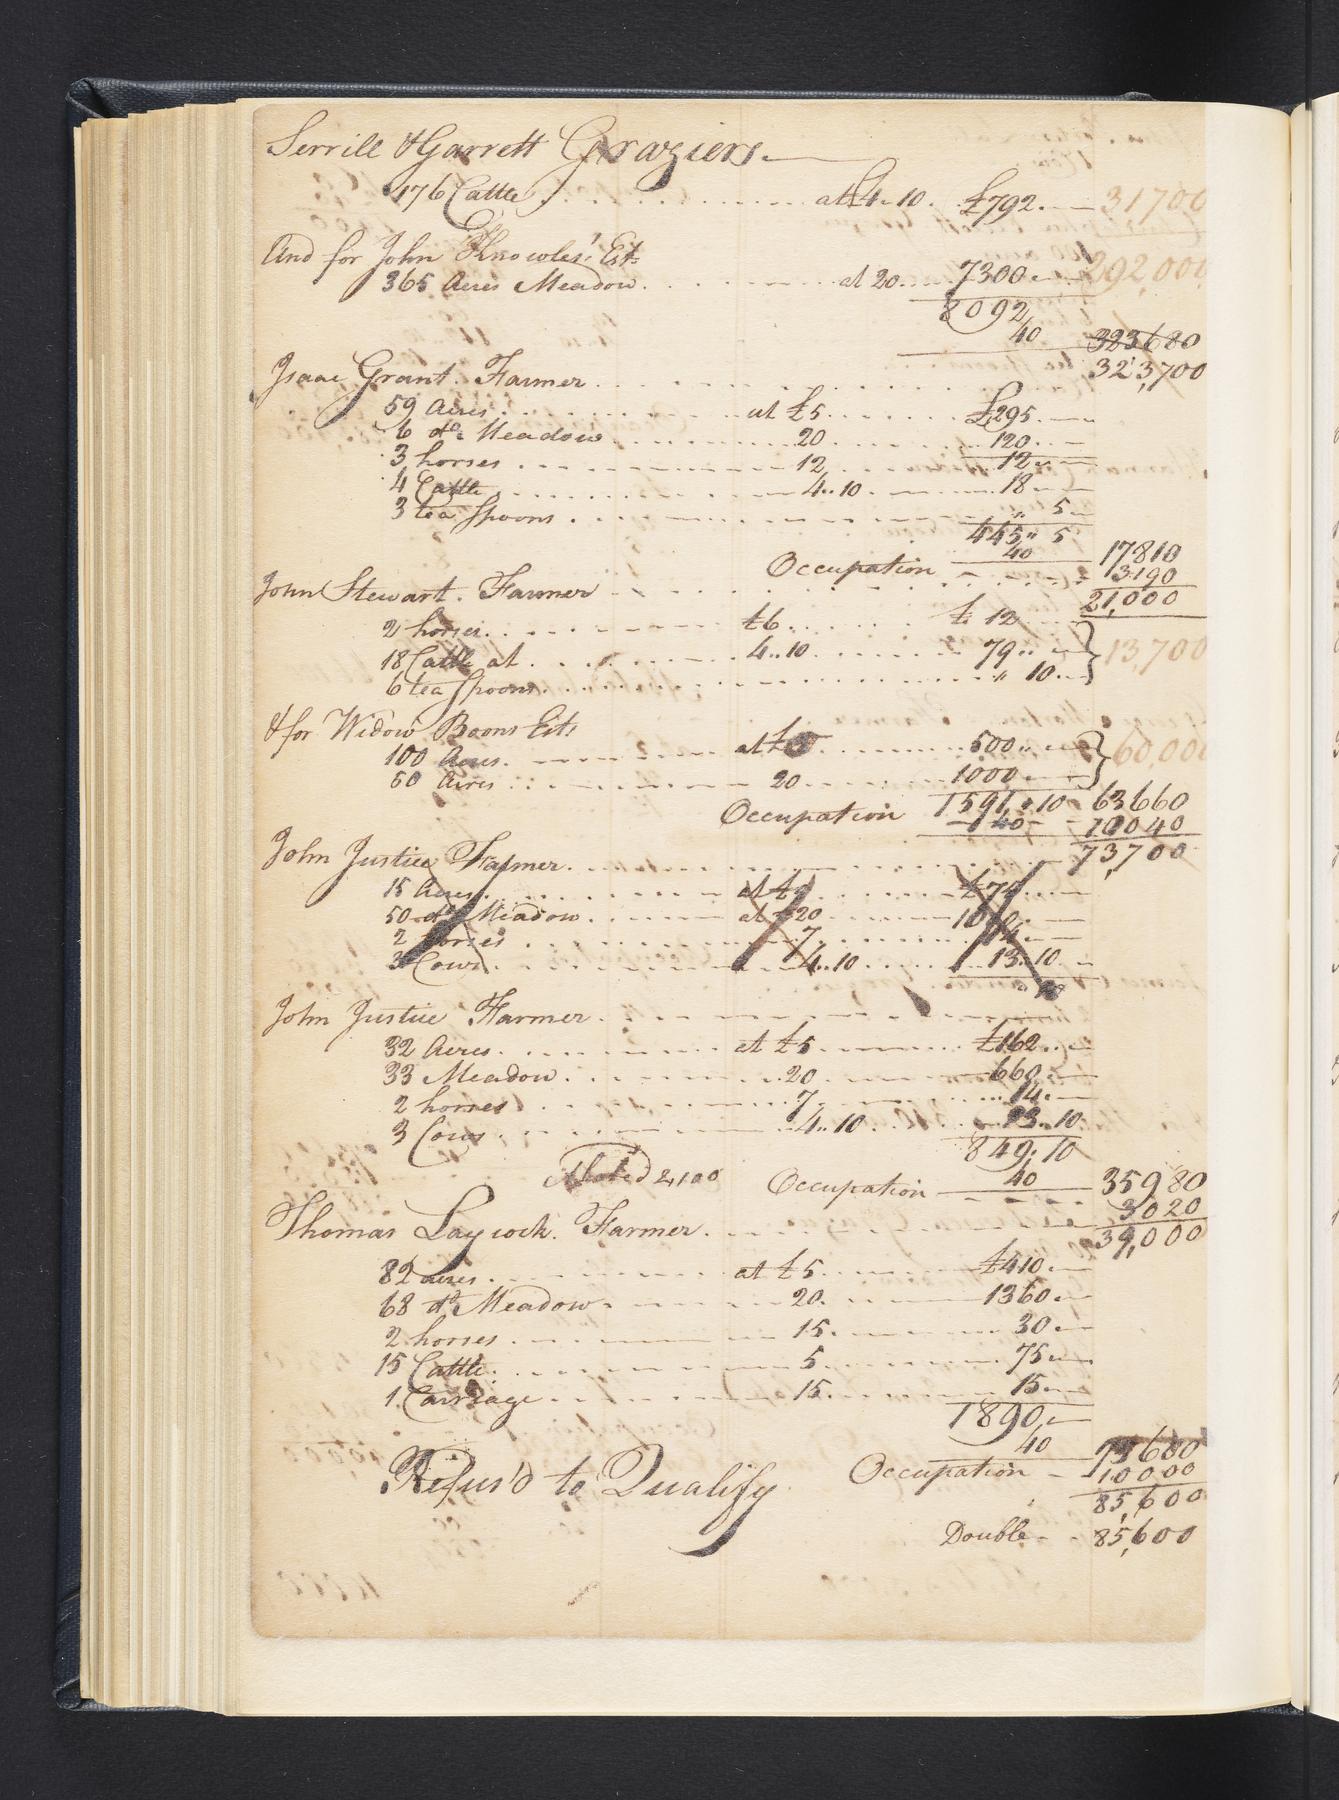 Serrill & Garrett Graziers
176 Cattle at £4..10. £792. 31700
And for John Knowles' Est
365 Acres Meadow at 20. 7300 292,000
8092
40 323680
323,700
Isaac Grant. Farmer
59 Acres at £5 £295.
6 do. Meadow 20 120.
3 horses 12 12
4 Cattle 4..10. 18
3 tea Spoons " 5
445" 5
40 17810
Occupation 3190
21,000
John Stewart. Farmer
2 horses £6 £ 12
18 Cattle at 4..10 79"
6 tea Spoons " 10
13,700
& for Widow Boons Est
100 Acres. at £5 500"
50 Acres 20 1000
60,000
1591 " 10 63660
Occupation 40 10040
73,700
John Justice Farmer
15 Acres at £5 £75
50 do. Meadow at £20 1000
2 horses 7 14
3 Cows 4..10 13.10
John Justice Farmer
32 Acres at £5 £162
33 Meadow 20 660
2 horses 7 14
3 Cows 4..10 13.10
849.10
40 35980
Abated 2,100 Occupation 3020
39,000
Thomas Laycock. Farmer
82 acres at £5 £410
68 do. Meadow 20. 1360
2 horses 15 30
15 Cattle 5 75
1 Carriage 15 15
1890
40 75600
Refus'd to Qualify Occupation 10000
85,600
Double 85,600